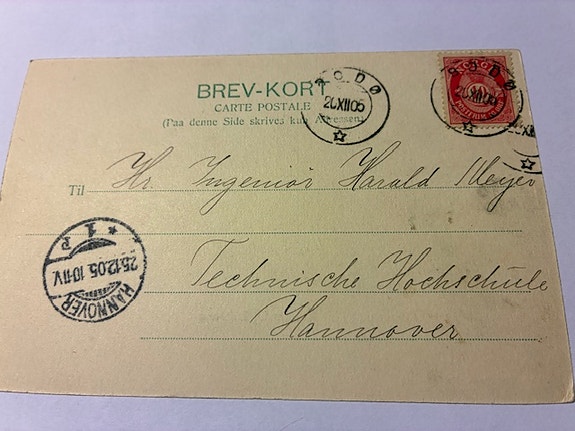 BREV-KORT
CARTE POSTALE
(Paa denne Side skrives kun Adressen)
BODØ
20XII05
BODØ
20XII05
Til Hr. Ingeniör Harald Meyer
Technische Hochschule
Hannover
HANNOVER
25.12.05. 10-11V.
* 1 P *